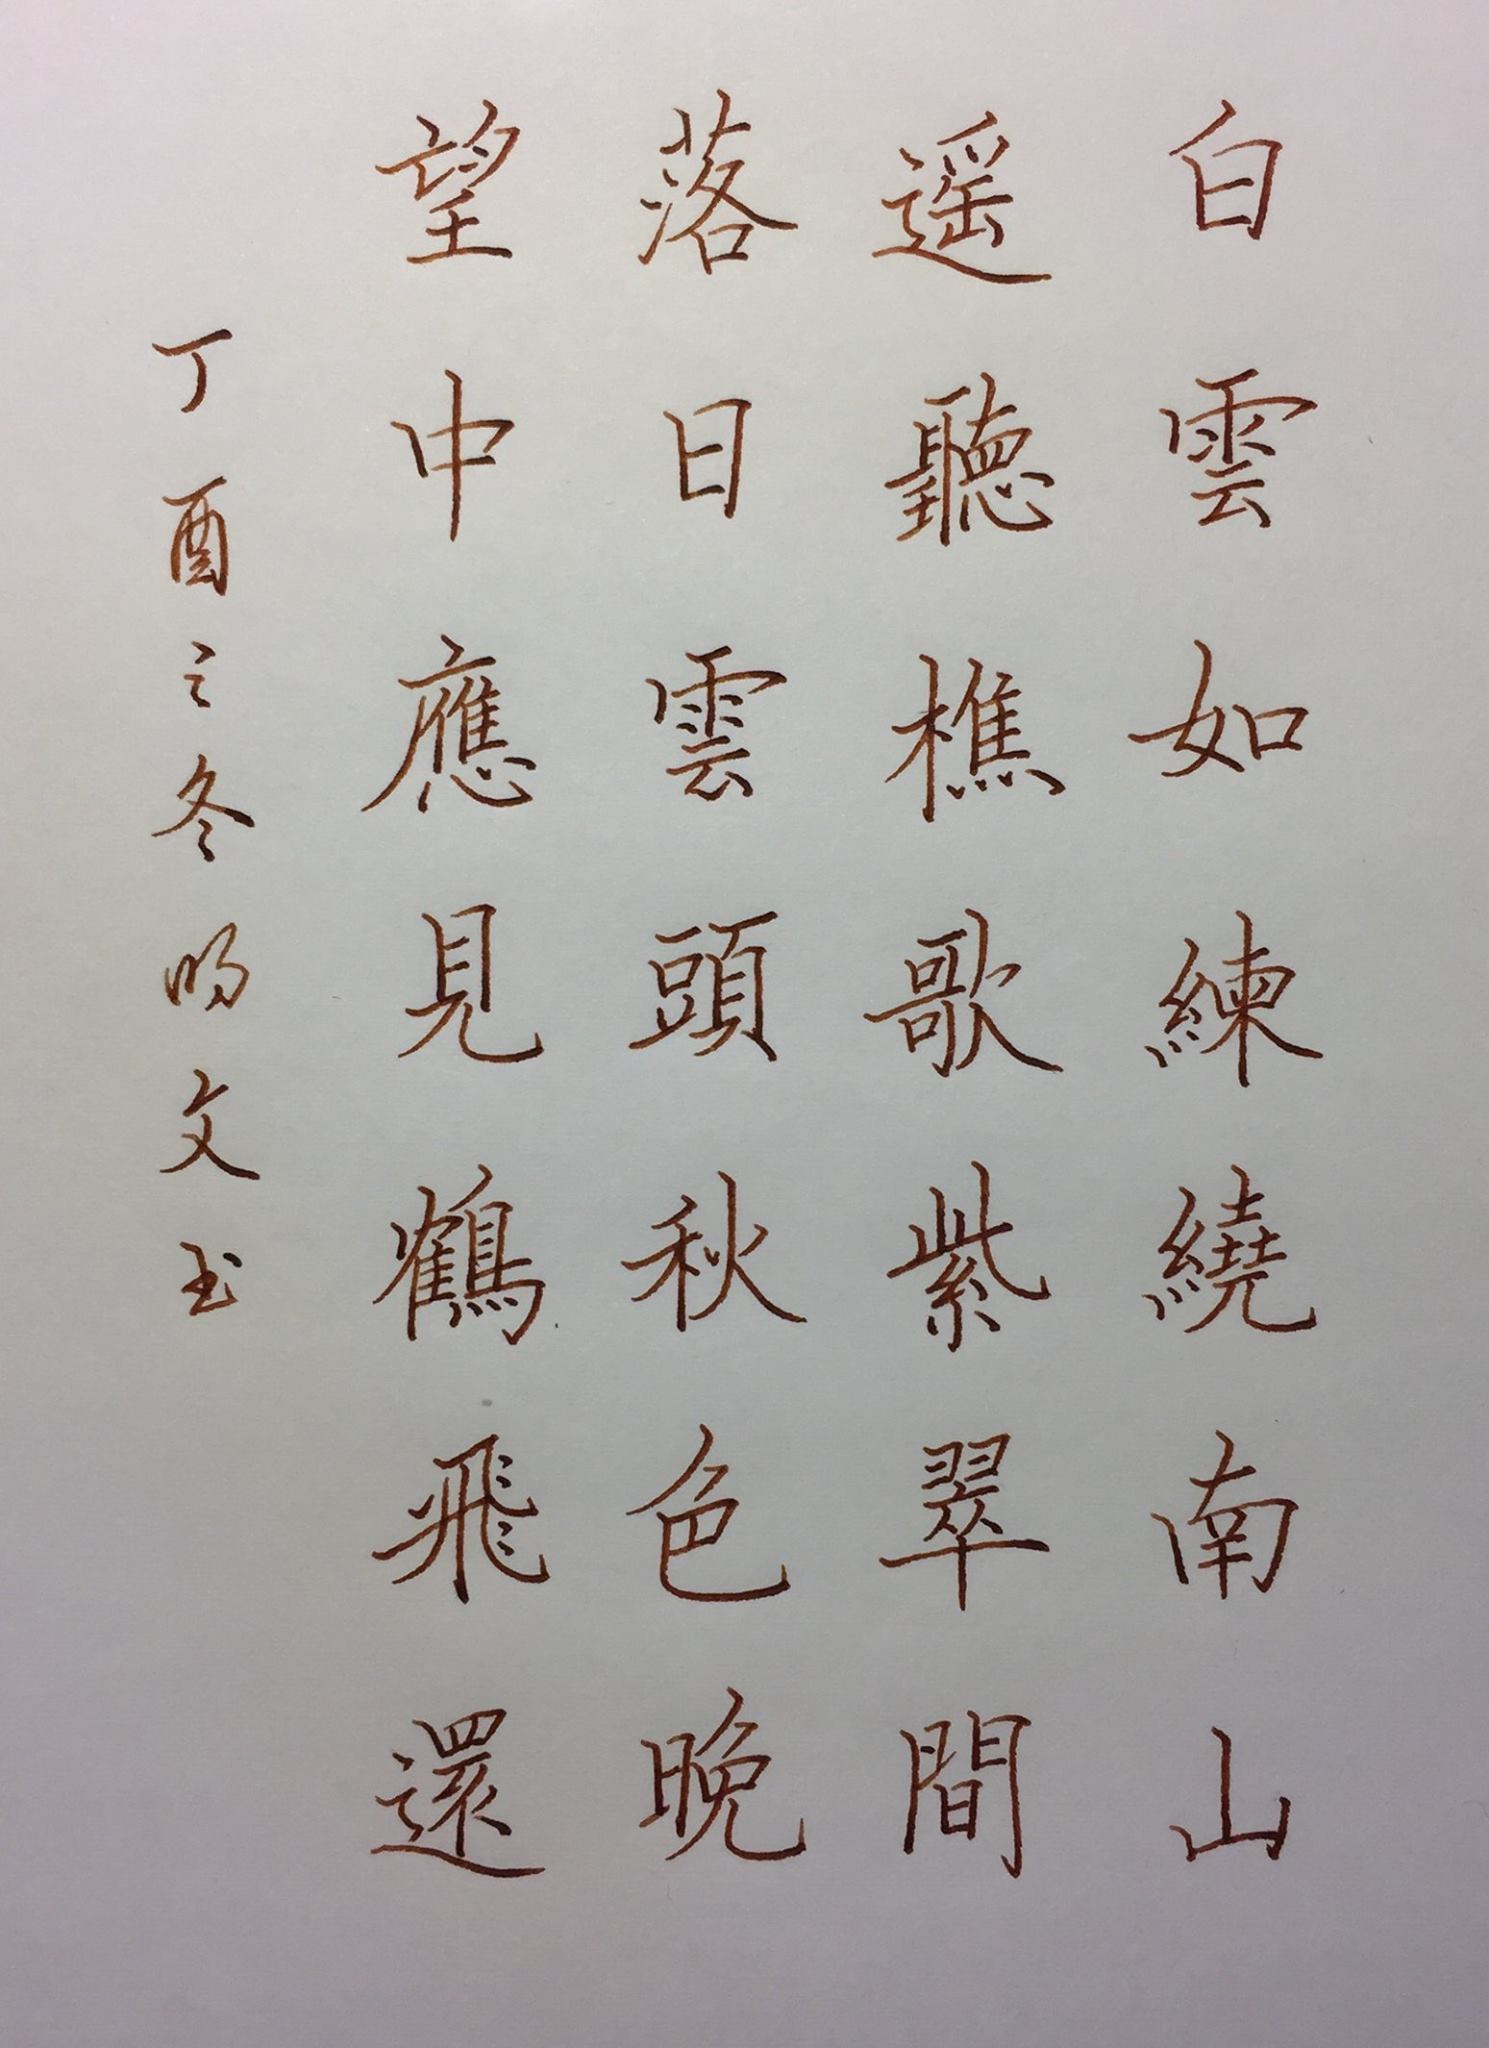 白雲如練繞南山
遥聽樵歌紫翠間
落日雲頭秋色晚
望中應見鶴飛還
丁酉之冬明文书